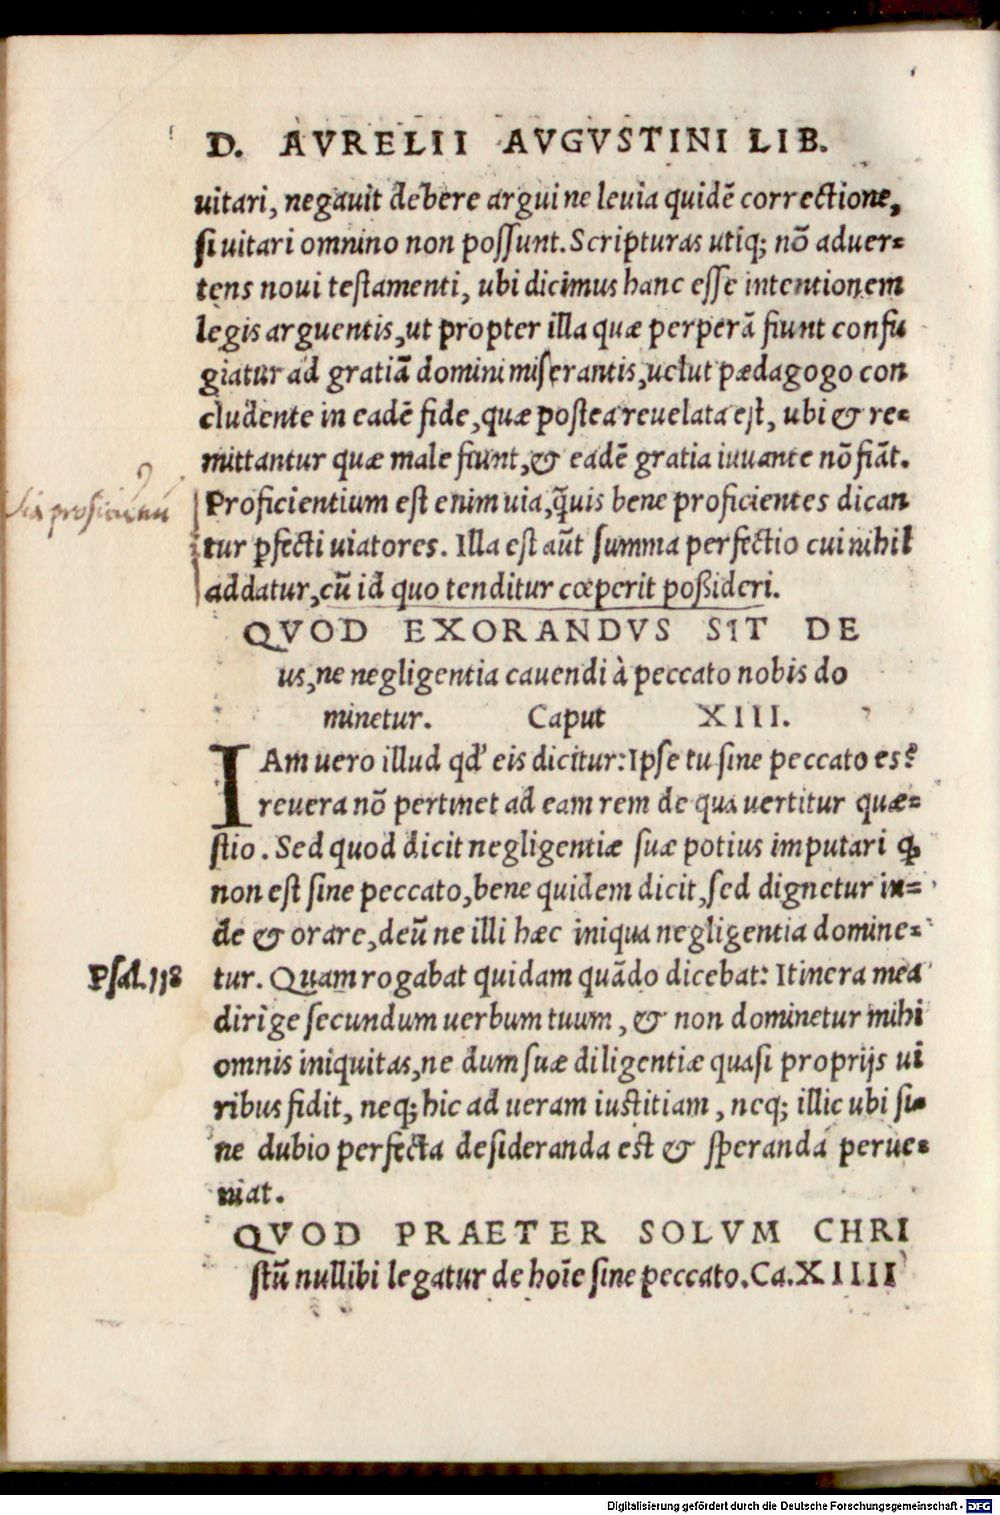 D. AVRELII AVGVSTINI LIB.
uitari, negauit debere argui ne leuia quidē correctione,
si uitari omnino non possunt. Scripturas utiq; nō aduer=
tens noui testamenti, ubi dicimus hanc esse intentionem
legis arguentis, ut propter illa quæ perperā fiunt confu
giatur ad gratiā domini miserantis, uelut pædagogo con
cludente in eadē fide, quæ postea reuelata est, ubi & re=
mittantur quæ male fiunt, & eadē gratia iuuante nō fiāt.
Proficientium est enim uia, q̄uis bene proficientes dican
tur ꝑfecti uiatores. Illa est aūt summa perfectio cui nihil
addatur, cū id quo tenditur cœperit possideri.
QVOD EXORANDVS SIT DE
us, ne negligentia cauendi à peccato nobis do
minetur. Caput XIII.
IAm uero illud qd' eis dicitur: Ipse tu sine peccato es?
reuera nō pertinet ad eam rem de qua uertitur quæ=
stio. Sed quod dicit negligentiæ suæ potius imputari ꝙ
non est sine peccato, bene quidem dicit, sed dignetur in=
de & orare, deū ne illi hæc iniqua negligentia domine=
Psal. 118 tur. Quam rogabat quidam quādo dicebat: Itinera mea
dirige secundum uerbum tuum, & non dominetur mihi
omnis iniquitas, ne dum suæ diligentiæ quasi proprijs ui
ribus fidit, neq; hic ad ueram iustitiam, neq; illic ubi si=
ne dubio perfecta desideranda est & speranda perue=
niat.
QVOD PRAETER SOLVM CHRI
stū nullibi legatur de hoīe sine peccato. Ca. XIIII
Digitalisierung gefördert durch die Deutsche Forschungsgemeinschaft - DFG